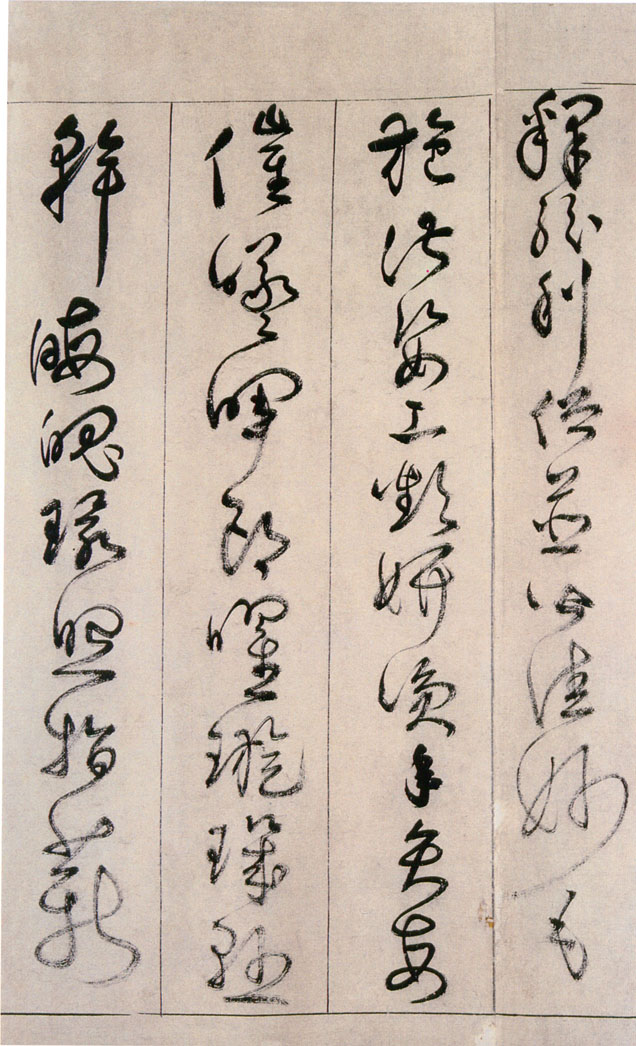 釋紛利俗並皆佳妙毛
施淑姿工顰妍笑年矢每
催曦暉朗曜璇璣懸
斡晦魄環照指薪